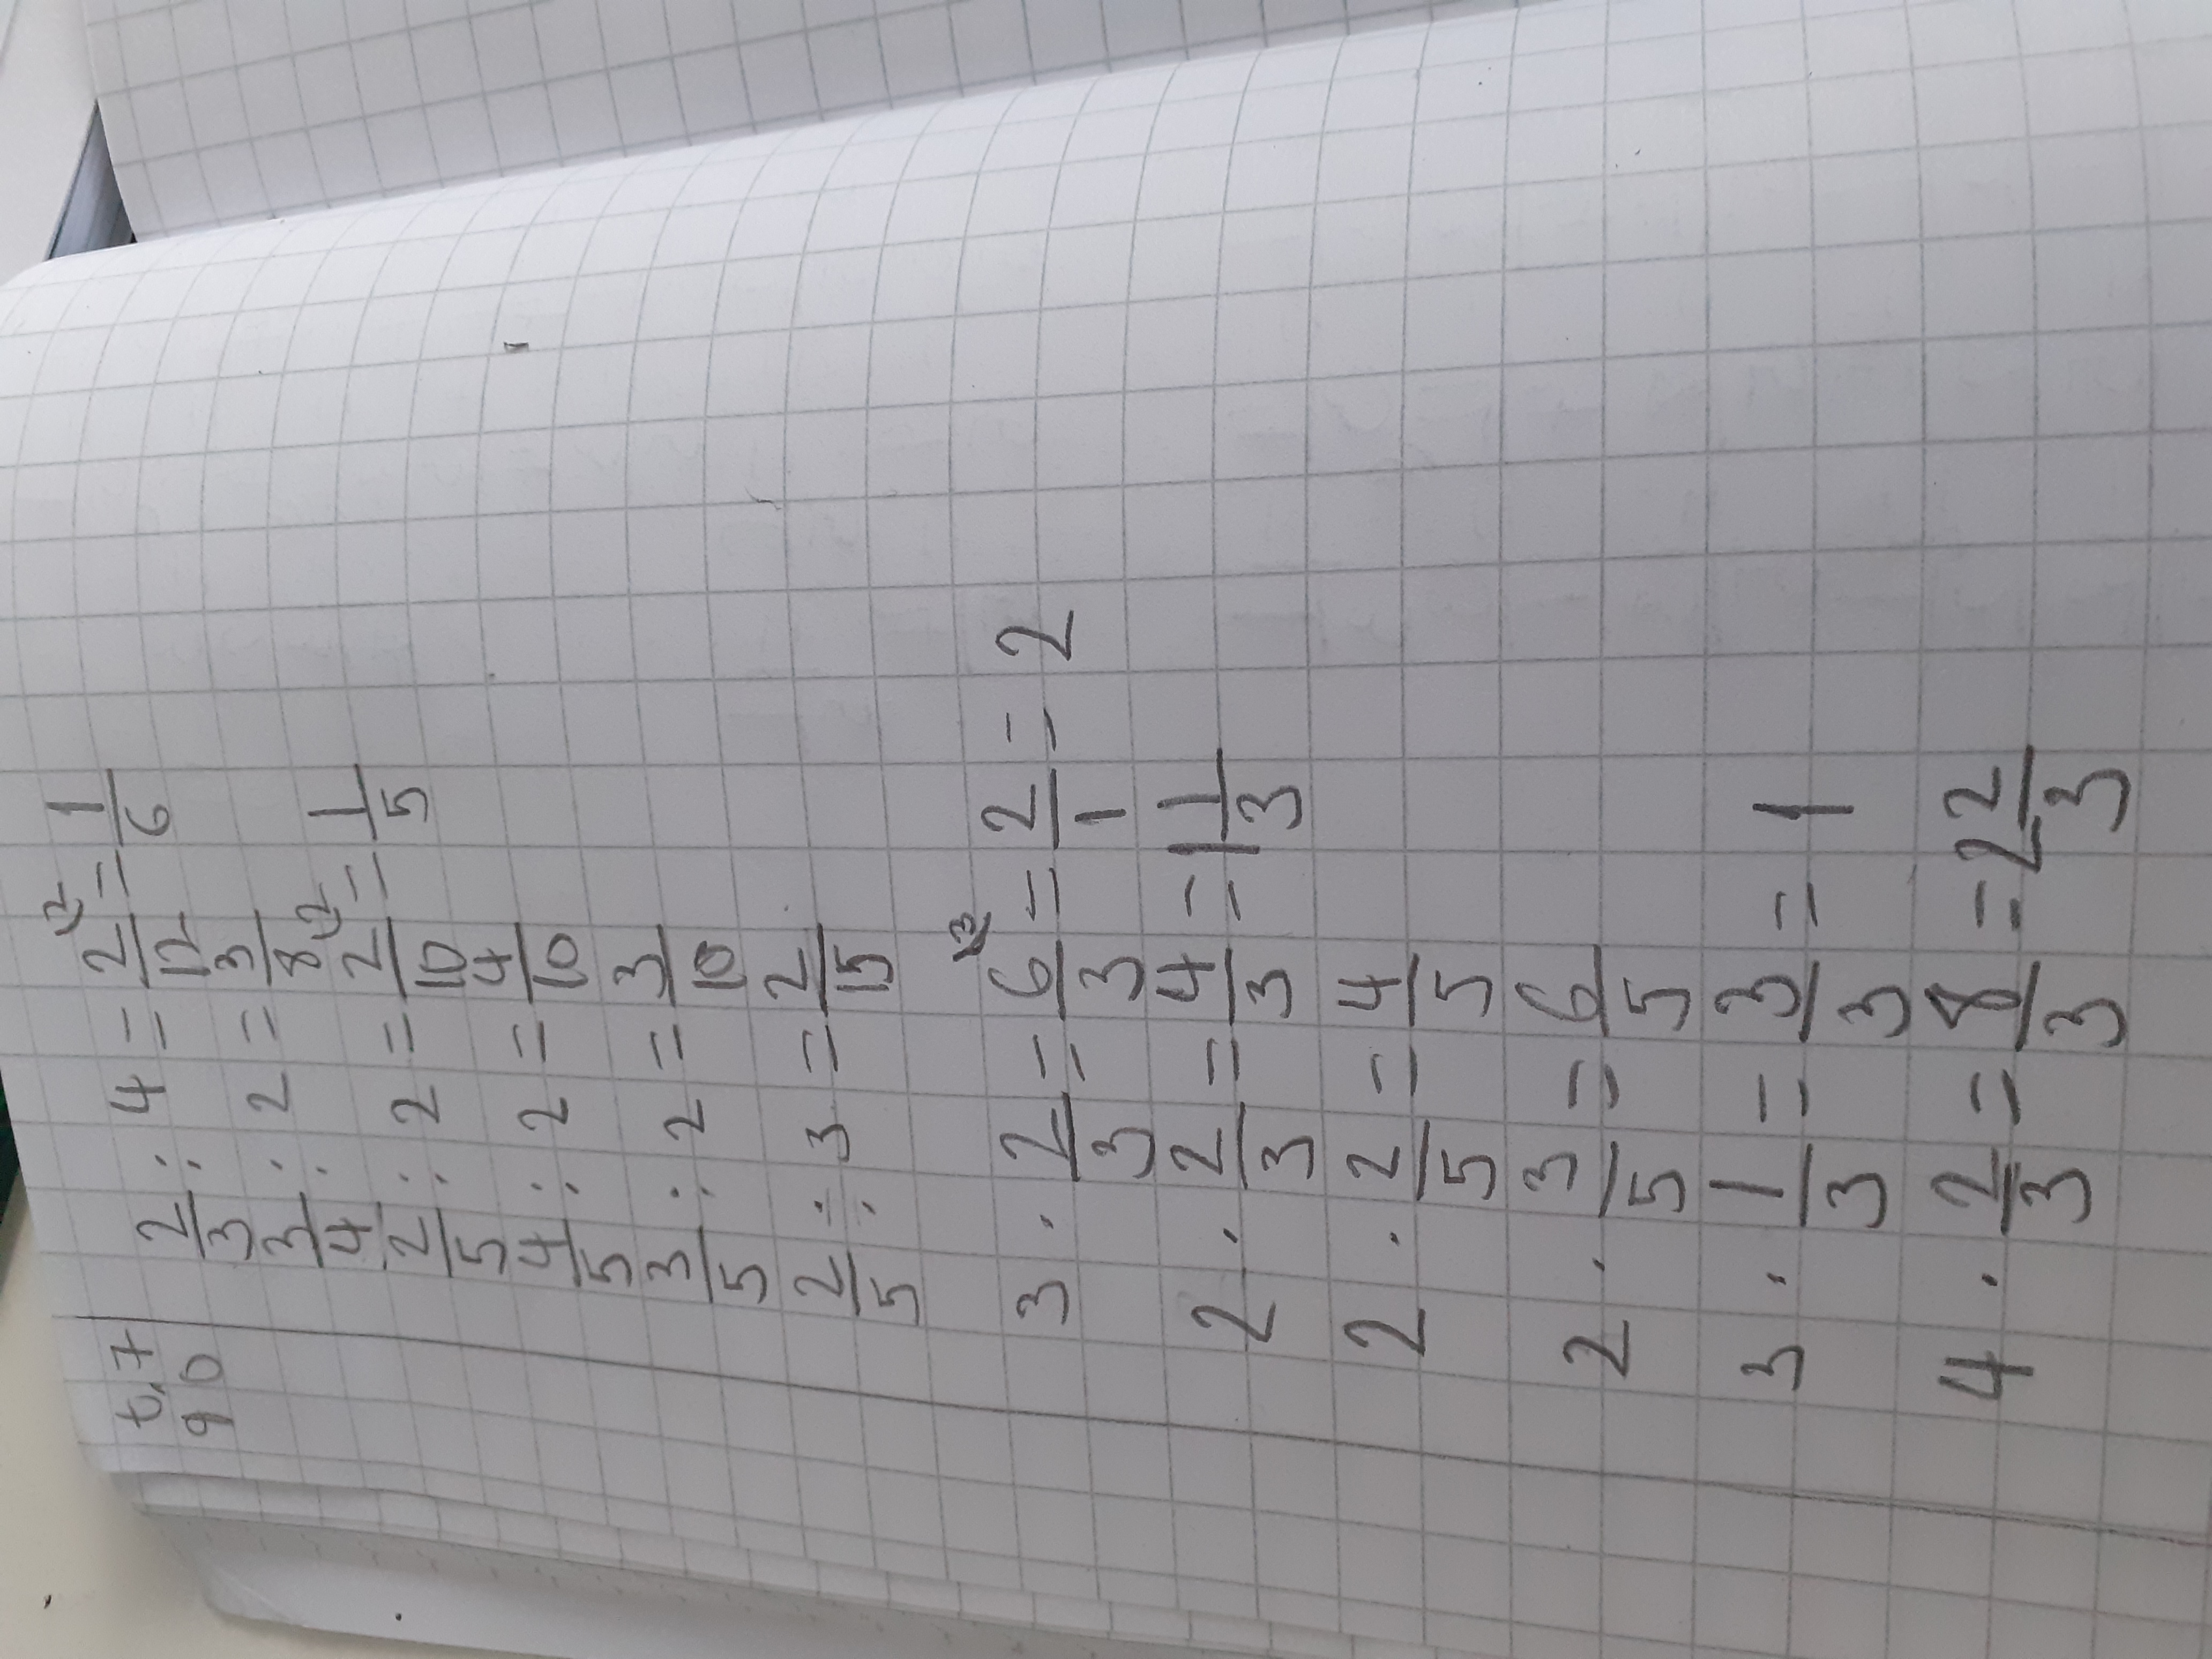 t.7
90
2/3 : 4 = 2/12 (2 = 1/6
3/4 : 2 = 3/8
2/5 : 2 = 2/10 (2 = 1/5
4/5 : 2 = 4/10
3/5 : 2 = 3/10
2/5 ÷ : 3 = 2/15
3 · 2/3 = 6/3 (3 = 2/1 = 2
2 · 2/3 = 4/3 = 1 1/3
2 · 2/5 = 4/5
2 · 3/5 = 6/5
3 · 1/3 = 3/3 = 1
4 · 2/3 = 8/3 = 2 2/3